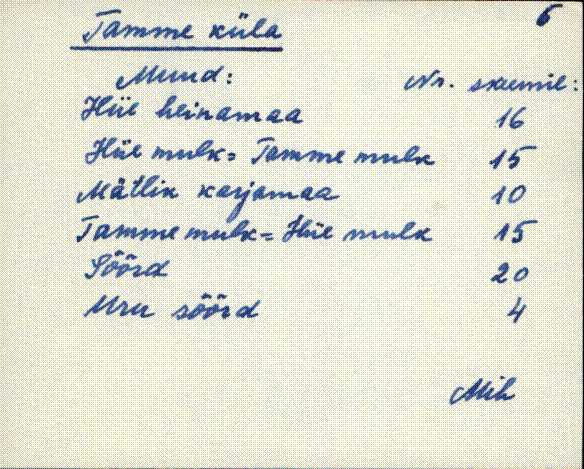 6
Tamme küla
Muud: Nr. skeemil:
Hüe heinamaa 16
Hüe mulk = Tamme mulk 15
Mätlik karjamaa 10
Tamme mulk = Hüe mulk 15
Söörd 20
Uru söörd 4
Mih